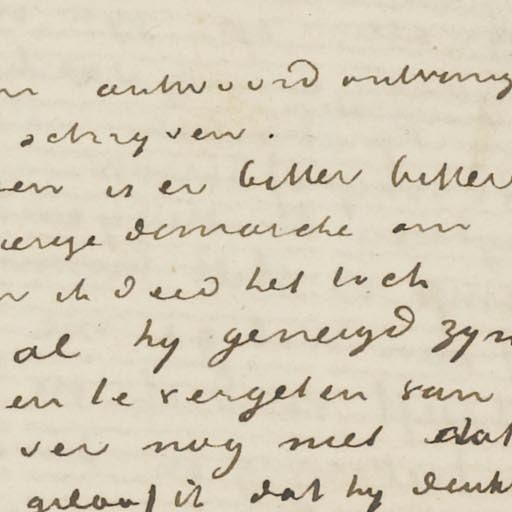 antwoord ontvang
schryven.
en is er bitter bitter
demarche om
ik deed het toch
al hy geneigd zyn
en te vergeten van
ver nog met dat
geloof ik dat hy denk